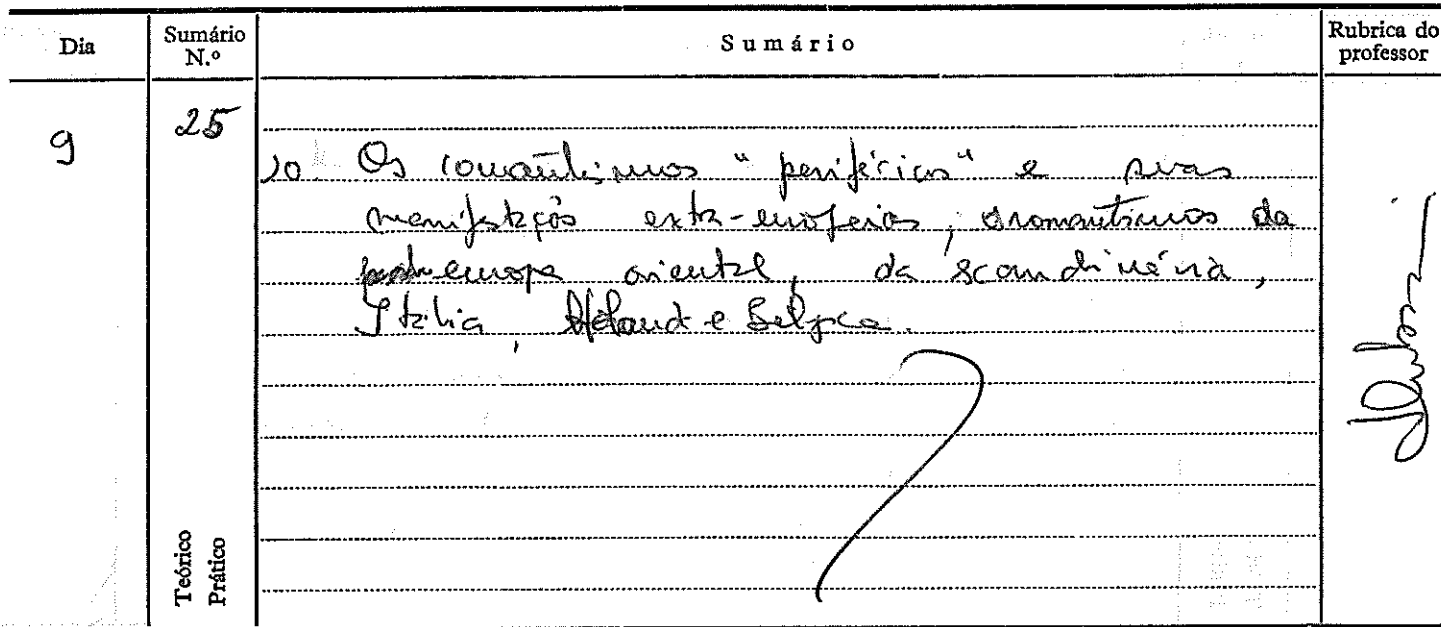 Dia
Sumário N.º
Sumário
Rubrica do professor
9
25
10 Os romantismos "periféricos" e suas
manifestações extra-europeias; o romantismos da
europa oriental, da scandinávia,
Itália, Holanda e Belgica.
Teórico
Prático